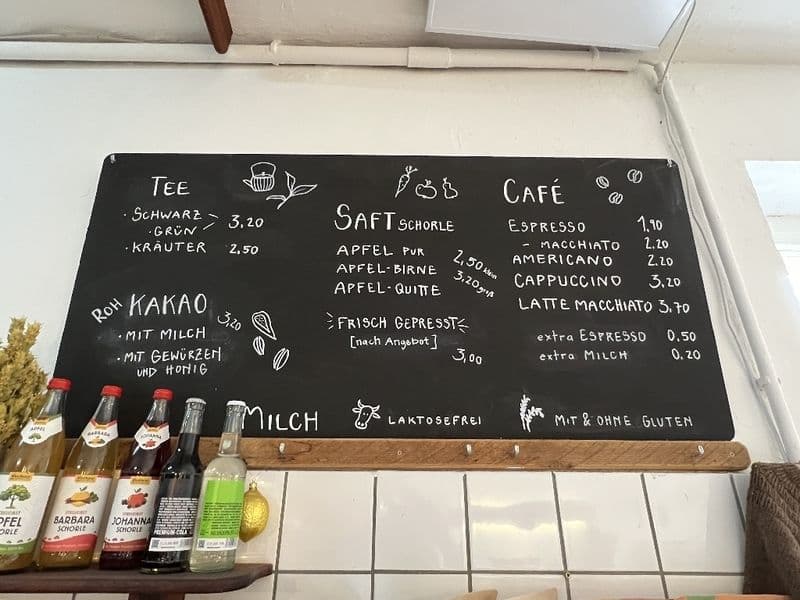 TEE
· SCHWARZ
· GRÜN 3,20
· KRÄUTER 2,50
ROH KAKAO 3,20
· MIT MILCH
· MIT GEWÜRZEN
UND HONIG
SAFT SCHORLE
APFEL PUR
APFEL-BIRNE
APFEL-QUITTE
2,50 klein
3,20 groß
FRISCH GEPRESST
[nach Angebot]
3,00
CAFÉ
ESPRESSO 1,90
- MACCHIATO 2,20
AMERICANO 2.20
CAPPUCCINO 3,20
LATTE MACCHIATO 3,70
extra ESPRESSO 0.50
extra MILCH 0,20
MILCH
LAKTOSEFREI
MIT & OHNE GLUTEN
APFEL
BARBARA
JOHANNA
BARBARA
SCHORLE
JOHANNA
SCHORLE
PREMIUM-COLA